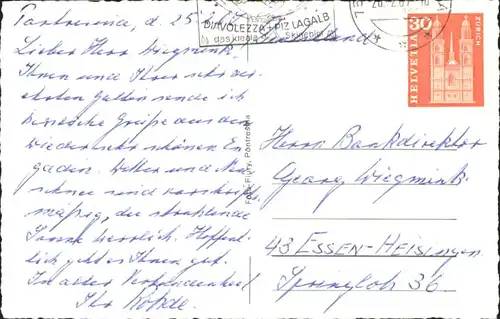 Pontresina, d. 25.
Lieber Herr Wiegmink,
Ihnen und Ihrer sehr ver-
ehrten Gattin sende ich
herzliche Grüße aus dem
wieder sehr schönen En-
gadin. Wetter und
Schnee sind vorschrifts-
mäßig, die strahlende
Sonne herrlich. Hoffent-
lich geht es Ihnen gut.
In alter Verbundenheit
Ihr Rohde.
DIAVOLEZZA + PIZ LAGALB
das ideale Skigebiet
30
HELVETIA
ZÜRICH
Foto Flury, Pontresina
Herrn Bankdirektor
Georg Wiegmink
43 ESSEN-HEISINGEN
Springloh 36